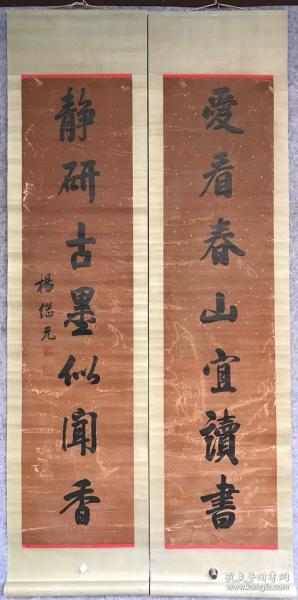 愛看春山宜讀書
静研古墨似聞香
楊繼元
孔夫子旧书网